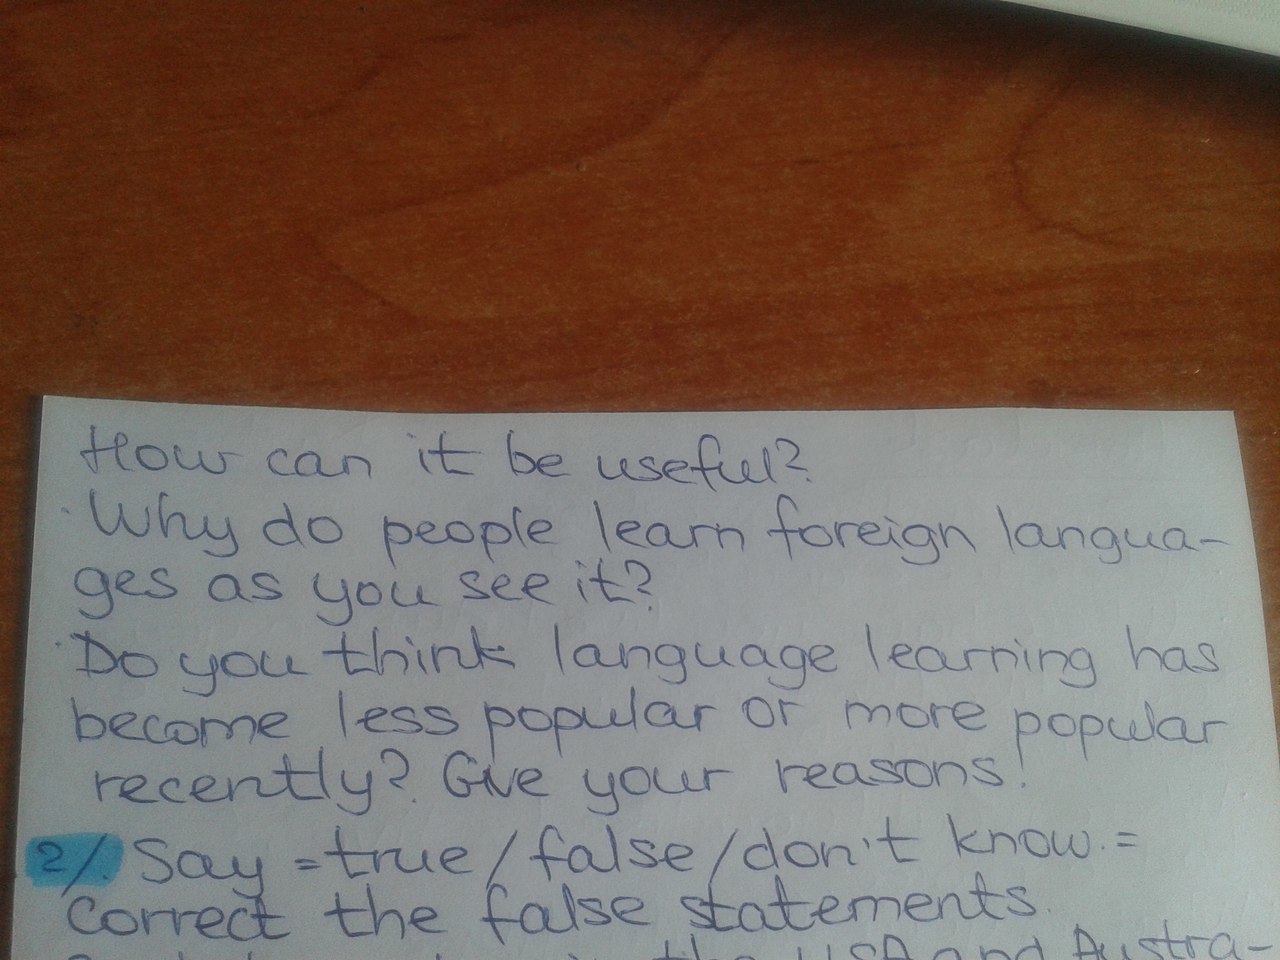 How can it be useful?
· Why do people learn foreign langua-
ges as you see it?
· Do you think language learning has
become less popular or more popular
recently? Give your reasons!
2/. Say =true/false/don't know.=
Correct the false statements.
in the USA and Austra-